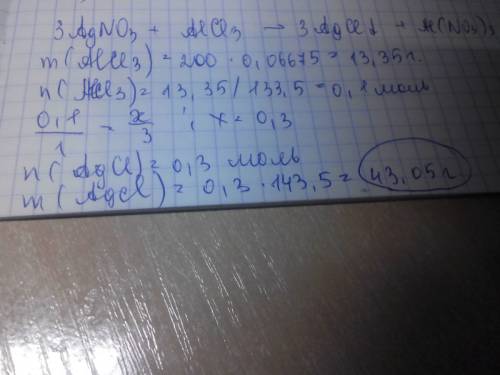 3AgNO₃ + AlCl₃ → 3AgCl↓ + Al(NO₃)₃
m(AlCl₃) = 200 · 0,06675 = 13,35 г.
n(AlCl₃) = 13,35 / 133,5 = 0,1 моль
0,1/1 = x/3 ; x = 0,3
n(AgCl) = 0,3 моль
m(AgCl) = 0,3 · 143,5 = 43,05 г